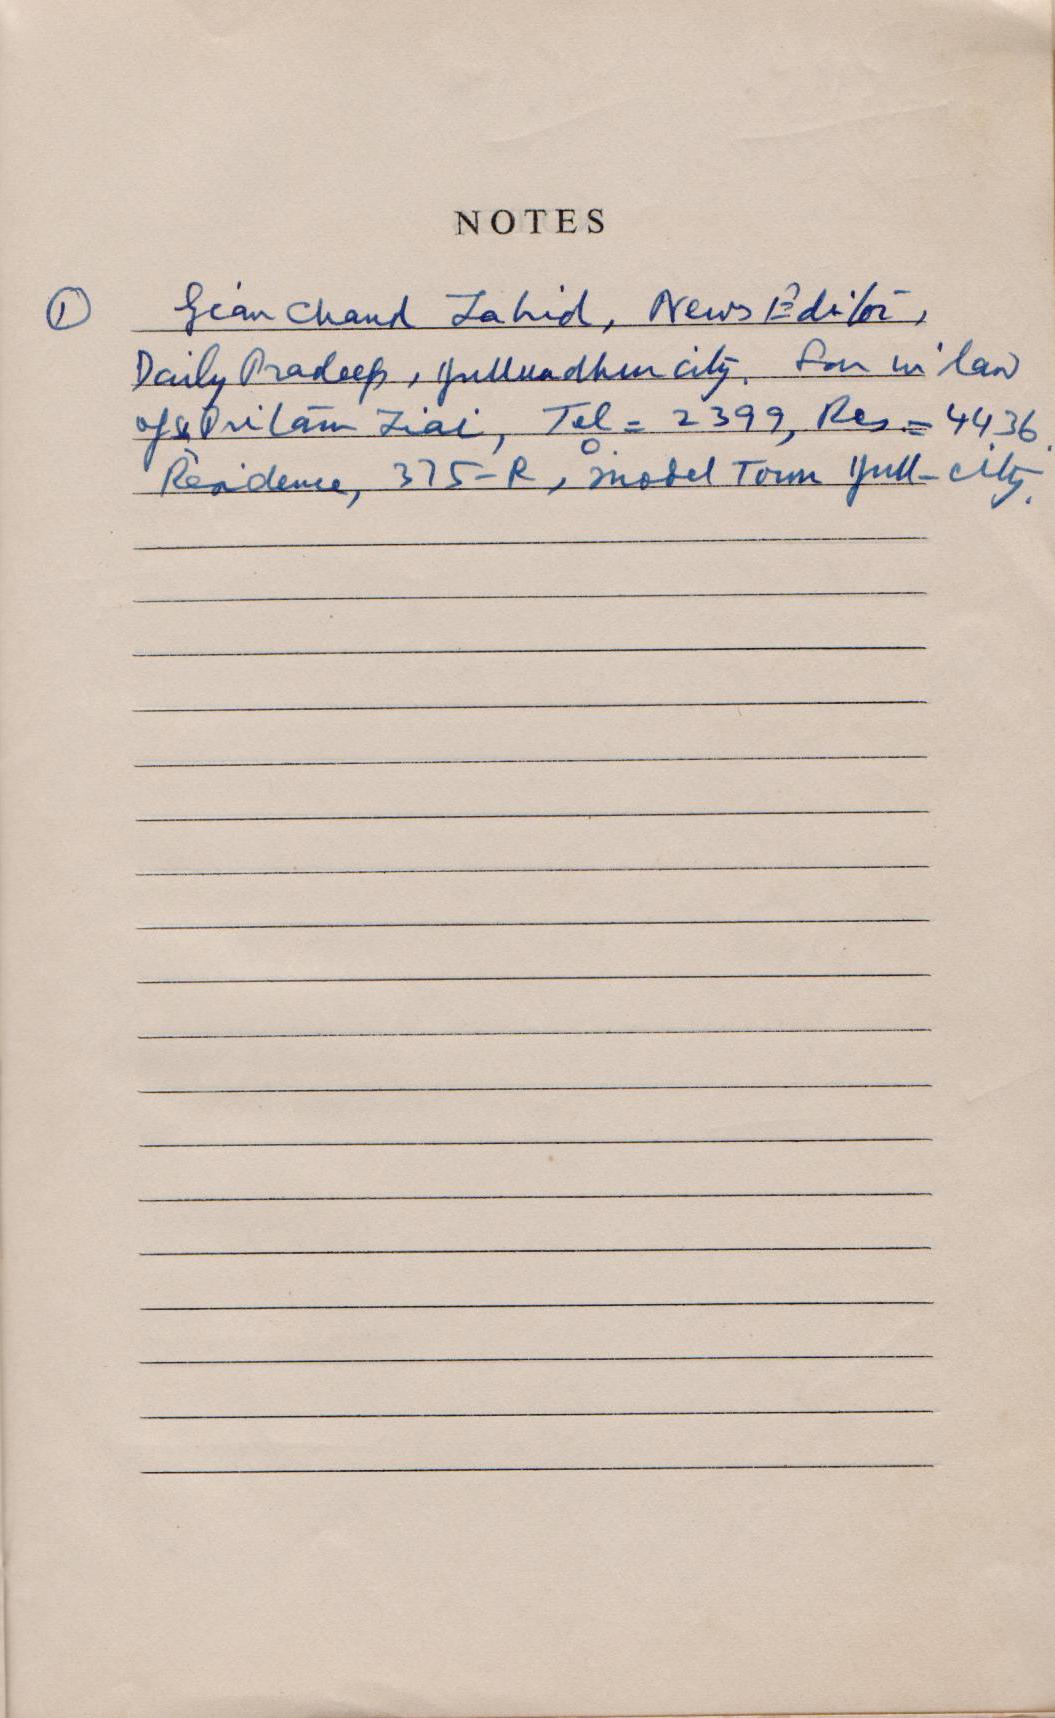 NOTES
① Gian Chand Zahid, News Editor,
Daily Pradeep, Jullundhur city. Son in law
of Pritam Ziai, Tel = 2399, Res = 4436.
Residence, 375-R, Model Town Jull- city.